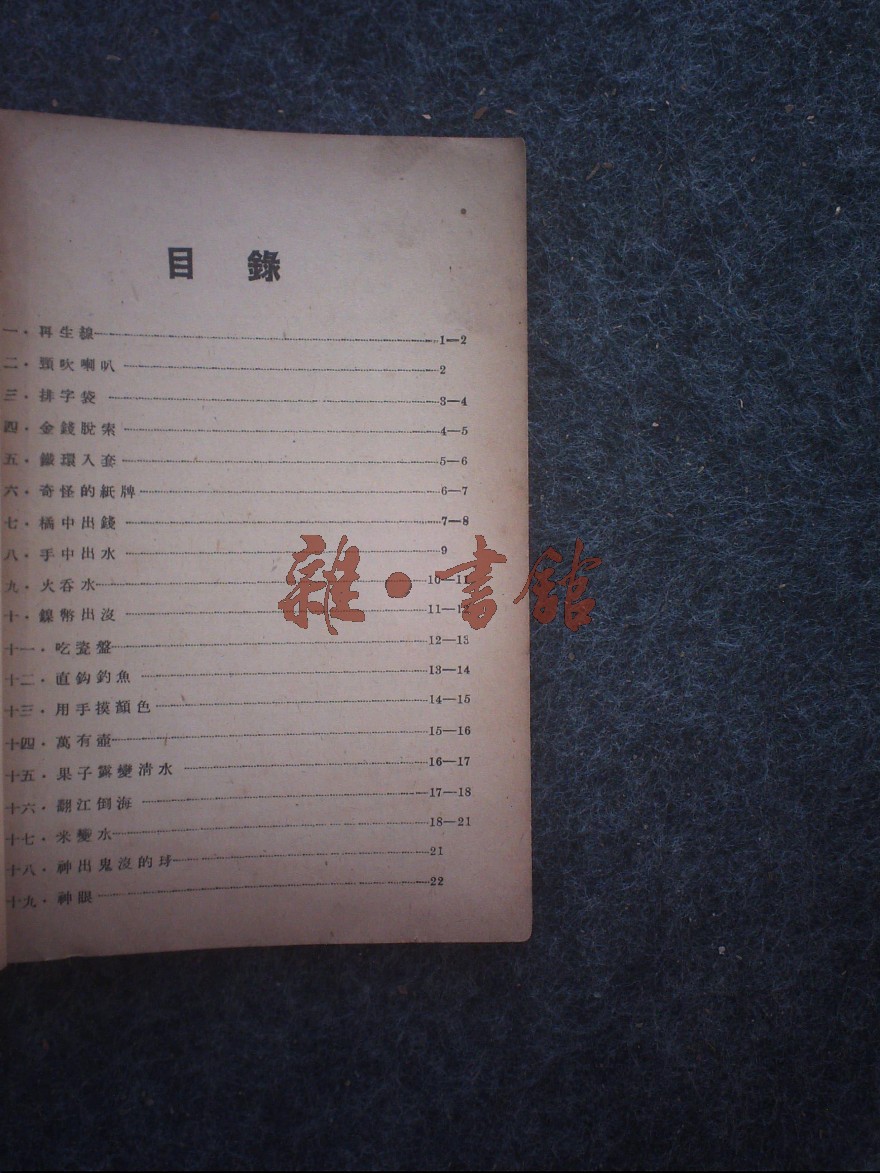 目錄
一·再生線 1—2
二·頸吹喇叭 2
三·排字袋 3—4
四·金錢脫索 4—5
五·鐵環入套 5—6
六·奇怪的紙牌 6—7
七·橘中出錢 7—8
八·手中出水 9
九·火吞水 10—11
十·鎳幣出沒 11—12
雜·書館
十一·吃瓷盤 12—13
十二·直鈎釣魚 13—14
十三·用手摸顏色 14—15
十四·萬有壺 15—16
十五·果子露變清水 16—17
十六·翻江倒海 17—18
十七·米變水 18—21
十八·神出鬼沒的球 21
十九·神眼 22